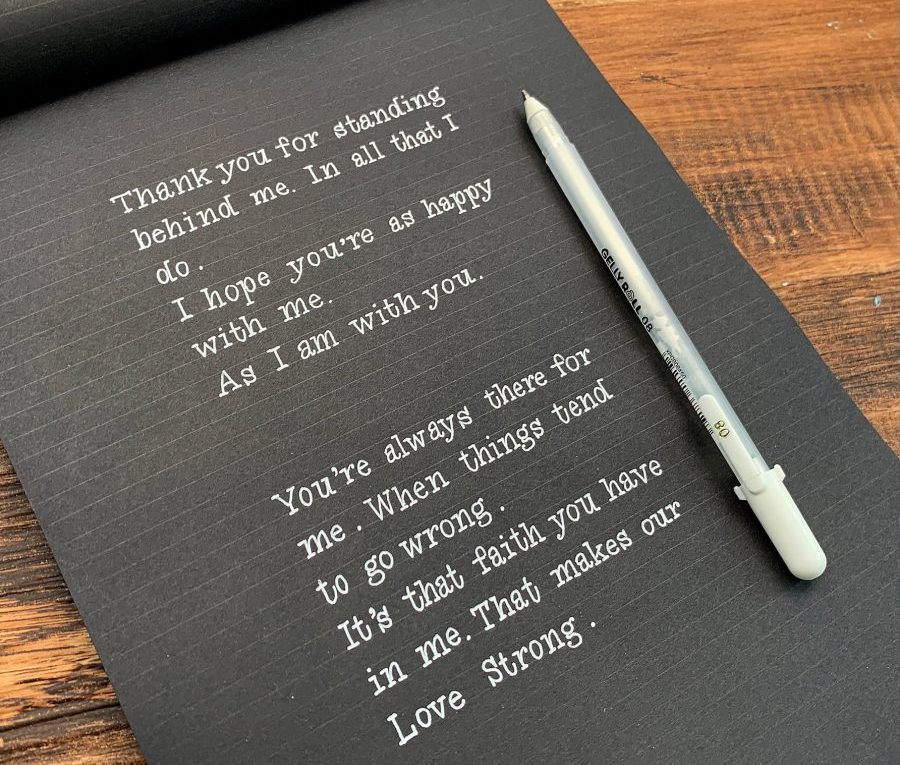 Thank you for standing
behind me. In all that I
do.
I hope you're as happy
with me.
As I am with you.
You're always there for
me. When things tend
to go wrong.
It's that faith you have
in me. That makes our
Love Strong.
GELLY ROLL 08